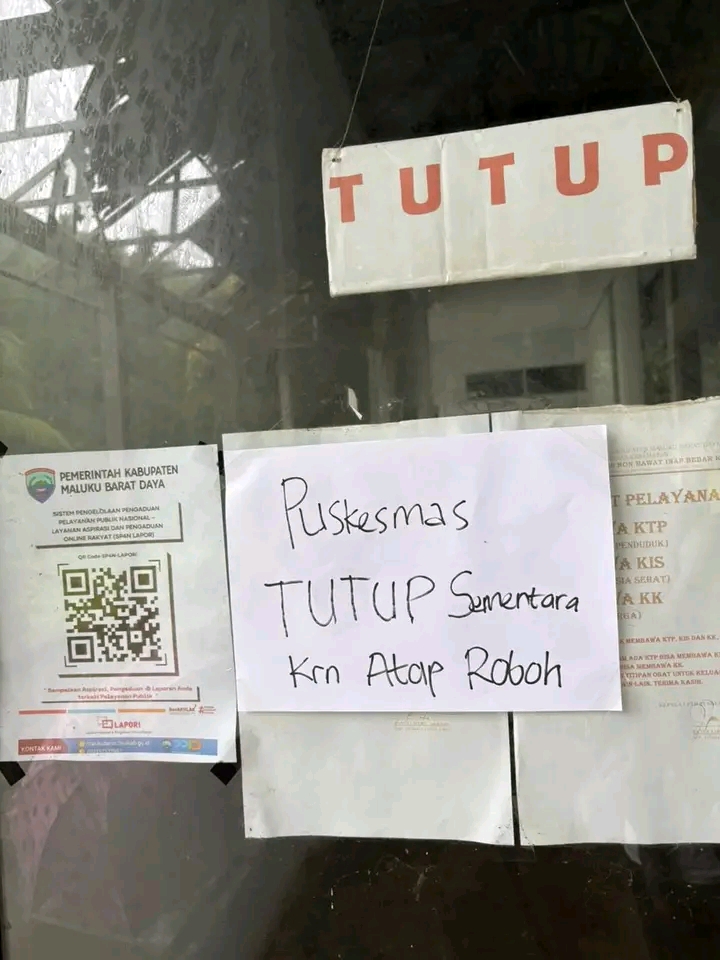 TUTUP
PEMERINTAH KABUPATEN
MALUKU BARAT DAYA
SISTEM PENGELOLAAN PENGADUAN
PELAYANAN PUBLIK NASIONAL –
LAYANAN ASPIRASI DAN PENGADUAN
ONLINE RAKYAT (SP4N LAPOR)
QR Code SP4N-LAPOR!
" Sampaikan Aspirasi, Pengaduan & Laporan Anda
terkait Pelayanan Publik "
LAPOR!
KONTAK KAMI
Puskesmas
TUTUP Sementara
Krn Atap Roboh
T PELAYANA
A KTP
PENDUDUK)
A KIS
SIA SEHAT)
A KK
MEMBAWA KTP, KIS DAN KK.
BISA MEMBAWA
TITIPAN OBAT UNTUK KELUAR
TERIMA KASIH.